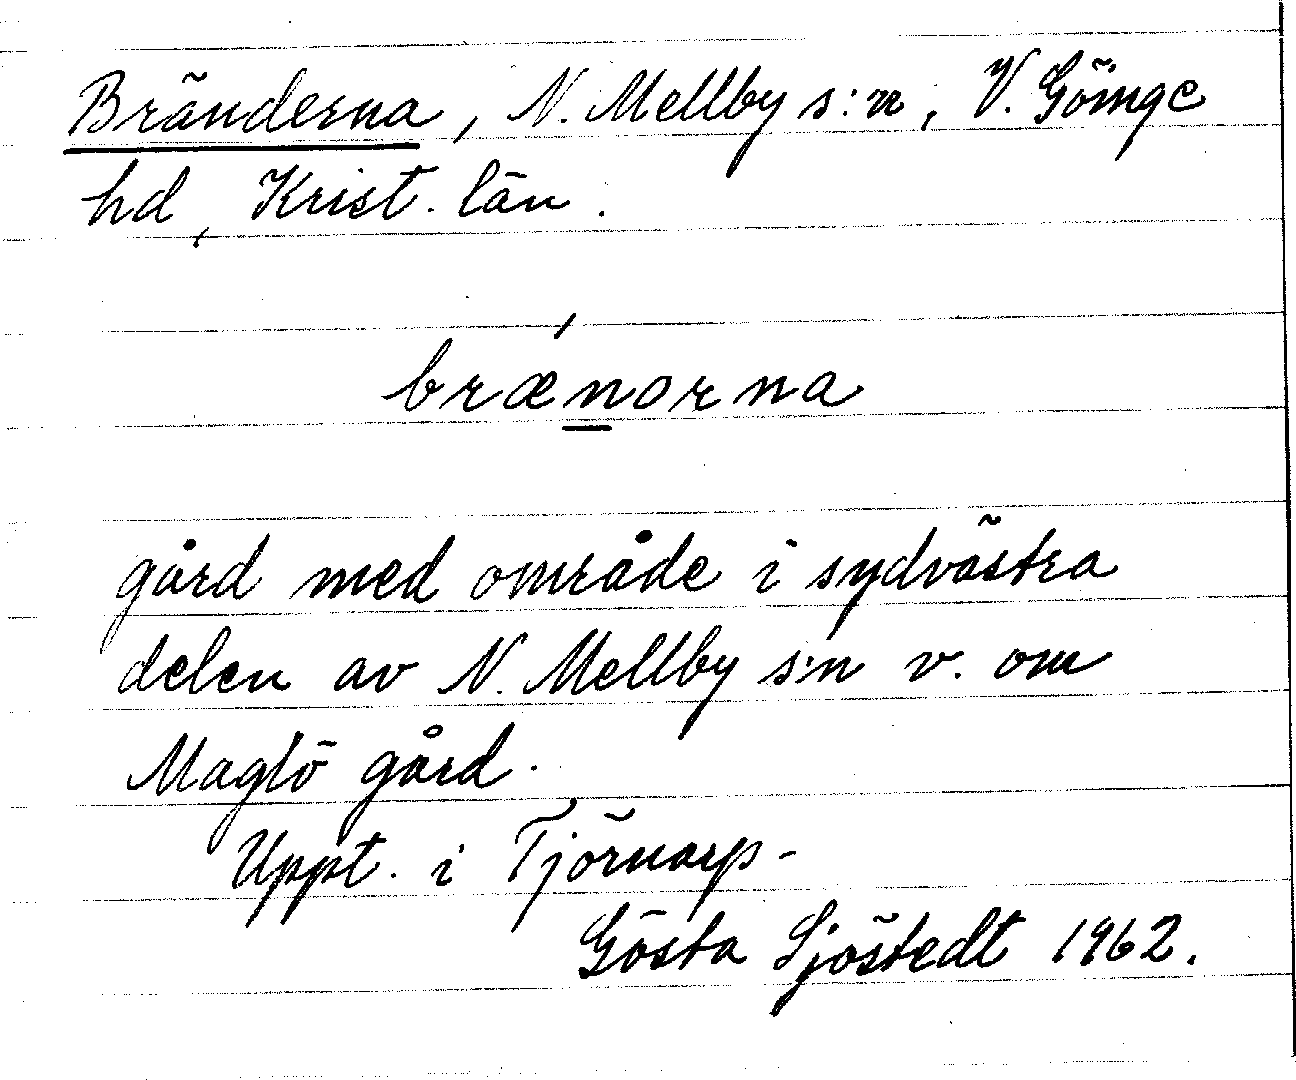 Bränderna, N. Mellby s:n, V. Göinge
hd, Krist. län.
bræ´norna
gård med område i sydvästra
delen av N. Mellby s:n v. om
Maglö gård.
Uppt. i Tjörnarp-
Gösta Sjöstedt 1962.